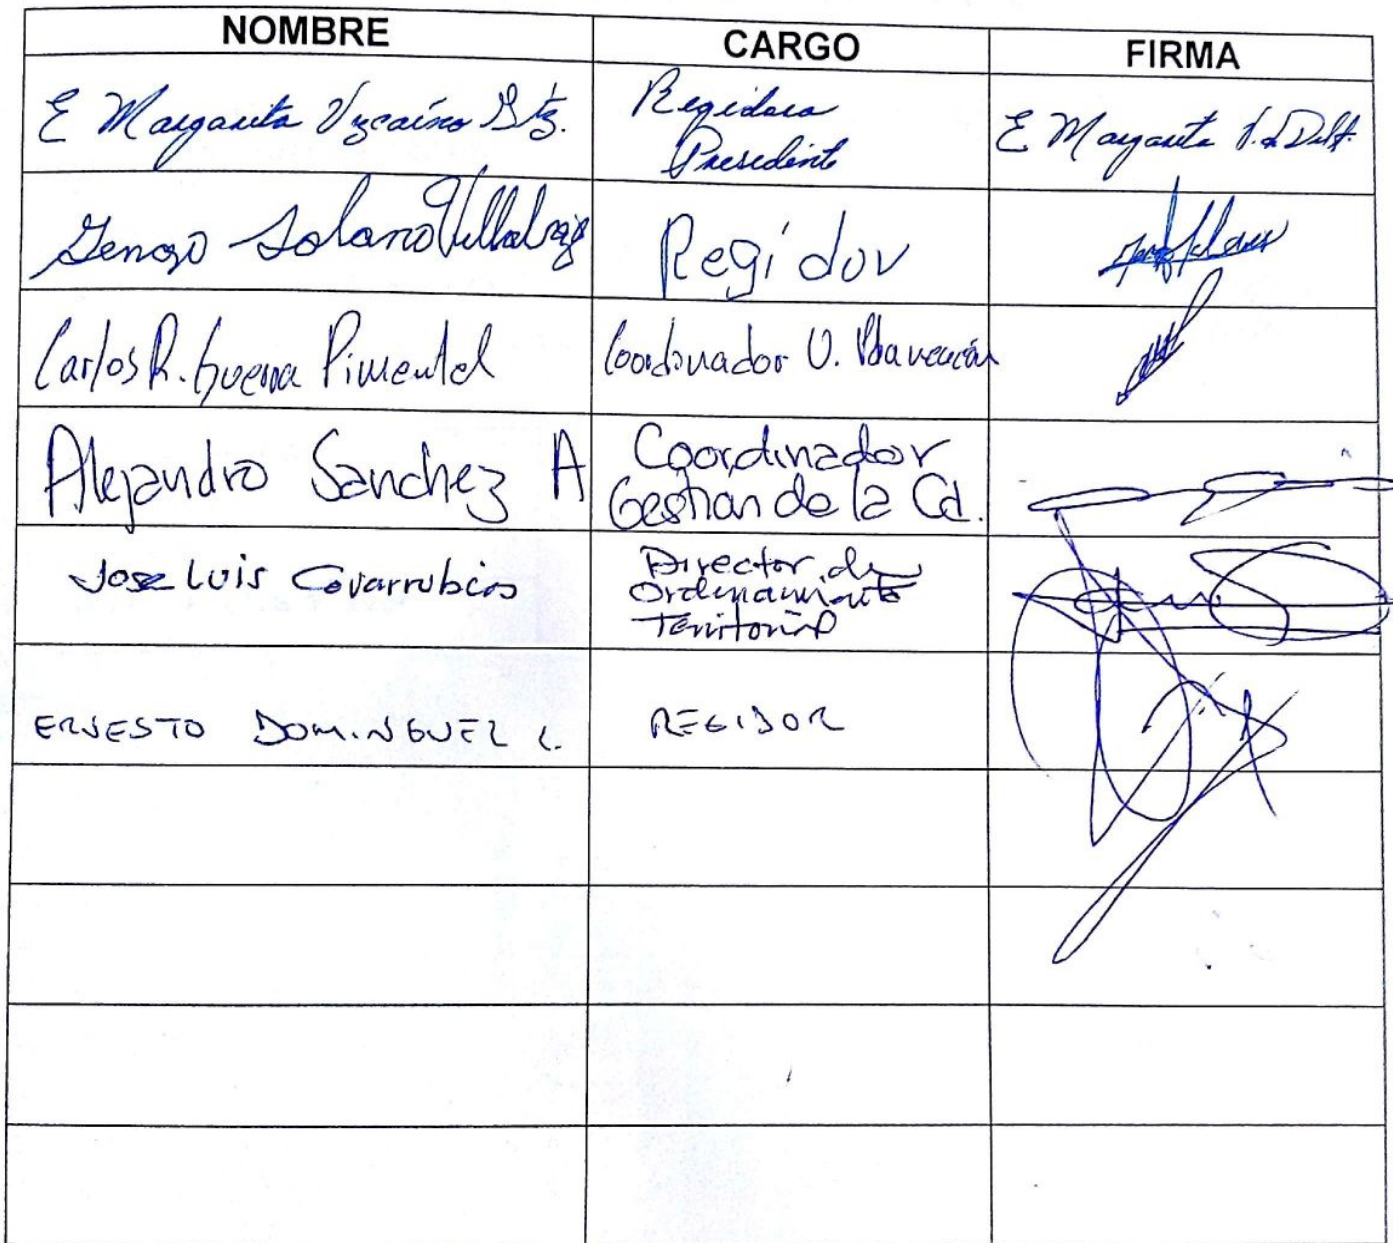 NOMBRE CARGO FIRMA
E Margarita Vizcaíno Gtz. Regidora Presidente E Margarita V.
Genaro Solano Villalvazo Regidor
Carlos R. Guerra Pimentel Coordinador U.
Alejandro Sanchez A Coordinador Gestion de la Cd.
Jose Luis Covarrubias Director de Ordenamiento Territorial
ERNESTO DOMINGUEZ REGIDOR